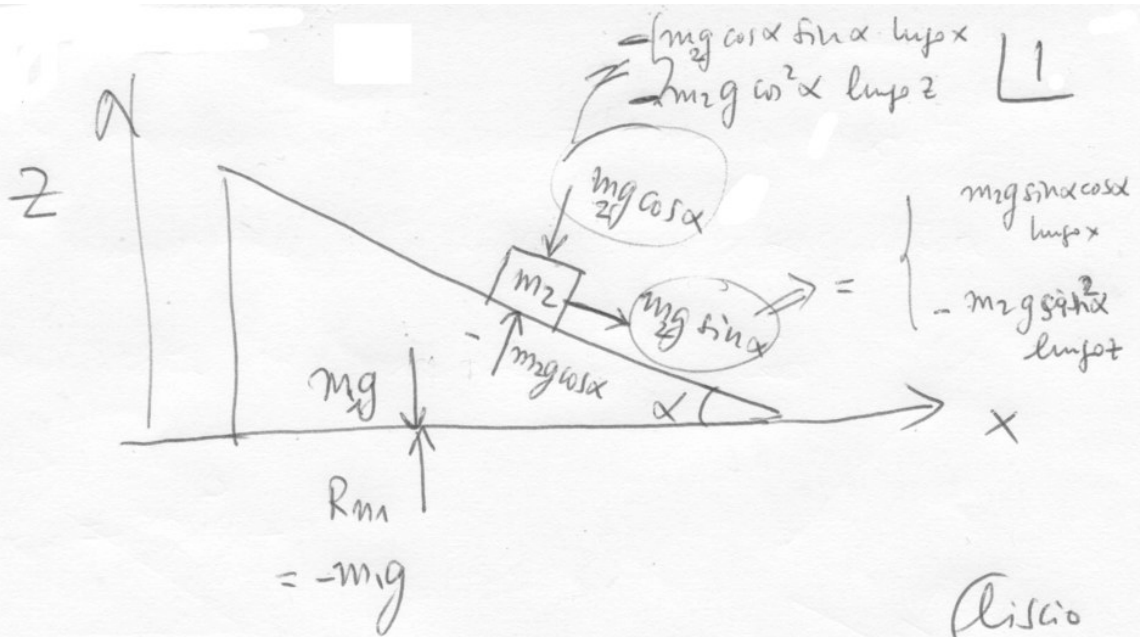 - m₂g cosα sinα lungo x
- m₂g cos²α lungo z
1
Z
m₂g cosα
m₂g sinα cosα
lungo x
m₂
m₂g sinα
=
- m₂g sin²α
lungo z
- m₂g cosα
m₁g
α
x
Rm₁
= -m₁g
liscio